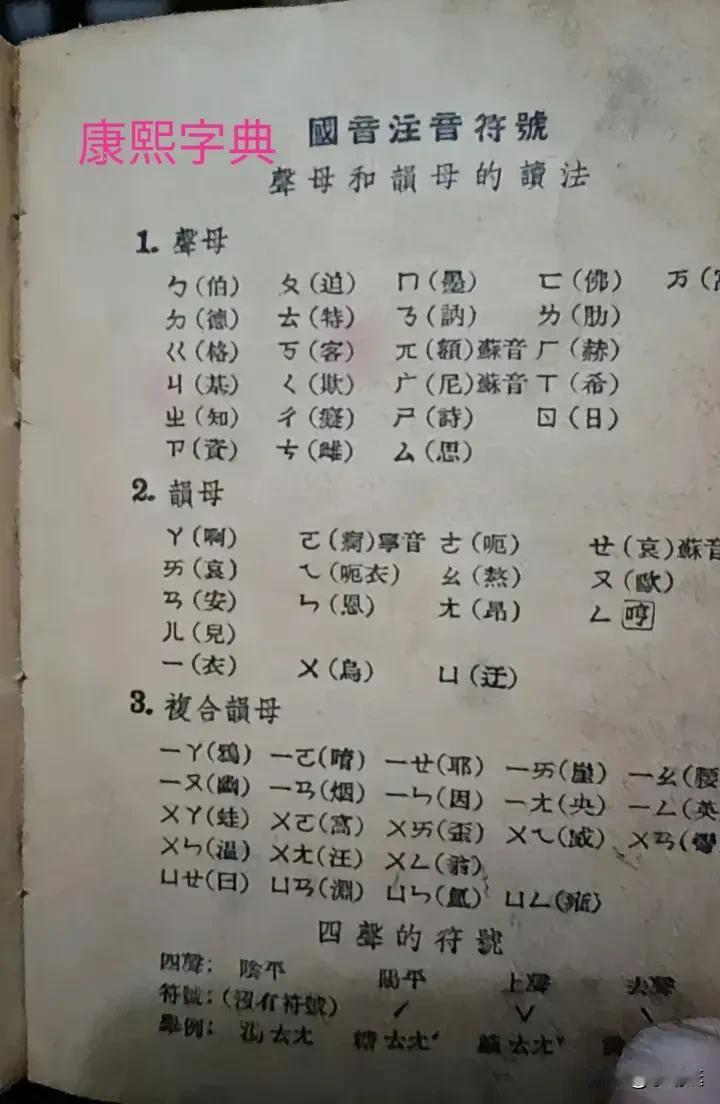 康熙字典
國音注音符號
聲母和韻母的讀法
1. 聲母
ㄅ(伯) ㄆ(迫) ㄇ(墨) ㄈ(佛) 万
ㄉ(德) ㄊ(特) ㄋ(訥) ㄌ(肋)
ㄍ(格) ㄎ(客) 兀(額)蘇音 ㄏ(赫)
ㄐ(基) ㄑ(欺) 广(尼)蘇音 ㄒ(希)
ㄓ(知) ㄔ(癡) ㄕ(詩) ㄖ(日)
ㄗ(資) ㄘ(雌) ㄙ(思)
2. 韻母
ㄚ(啊) ㄛ(痾)寧音 ㄜ(呃) ㄝ(哀)蘇音
ㄞ(哀) ㄟ(呃衣) ㄠ(熬) ㄡ(歐)
ㄢ(安) ㄣ(恩) ㄤ(昂) ㄥ 哼
ㄦ(兒)
一(衣) ㄨ(烏) ㄩ(迂)
3. 複合韻母
一ㄚ(鴉) 一ㄛ(唷) 一ㄝ(耶) 一ㄞ(崖) 一ㄠ(腰
一ㄡ(幽) 一ㄢ(烟) 一ㄣ(因) 一ㄤ(央) 一ㄥ(英
ㄨㄚ(蛙) ㄨㄛ(窩) ㄨㄞ(歪) ㄨㄟ(威) ㄨㄢ(彎
ㄨㄣ(溫) ㄨㄤ(汪) ㄨㄥ(翁)
ㄩㄝ(曰) ㄩㄢ(淵) ㄩㄣ(氳) ㄩㄥ(雍)
四聲的符號
四聲: 陰平 陽平 上聲 去聲
符號: (沒有符號) ˊ ˇ ˋ
舉例: 湯ㄊㄤ 糖ㄊㄤˊ 躺ㄊㄤˇ